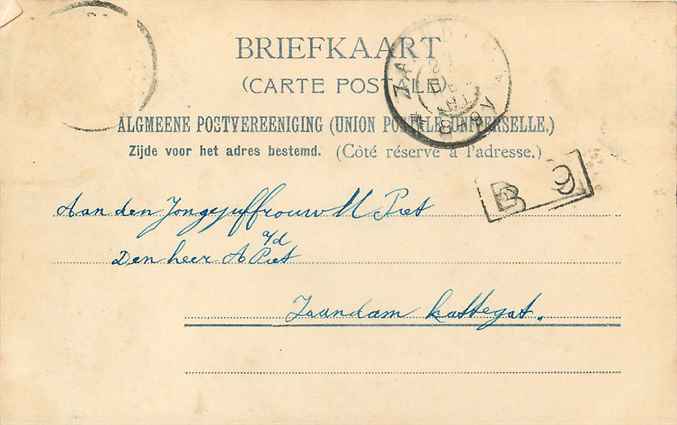 BRIEFKAART
(CARTE POSTALE)
ALGMEENE POSTVEREENIGING (UNION POSTALE UNIVERSELLE.)
Zijde voor het adres bestemd. (Côté réservé à l'adresse.)
B 9
Aan den Jongejuffrouw M Piet
a/d
Den heer A Piet
Zaandam Kattegat.